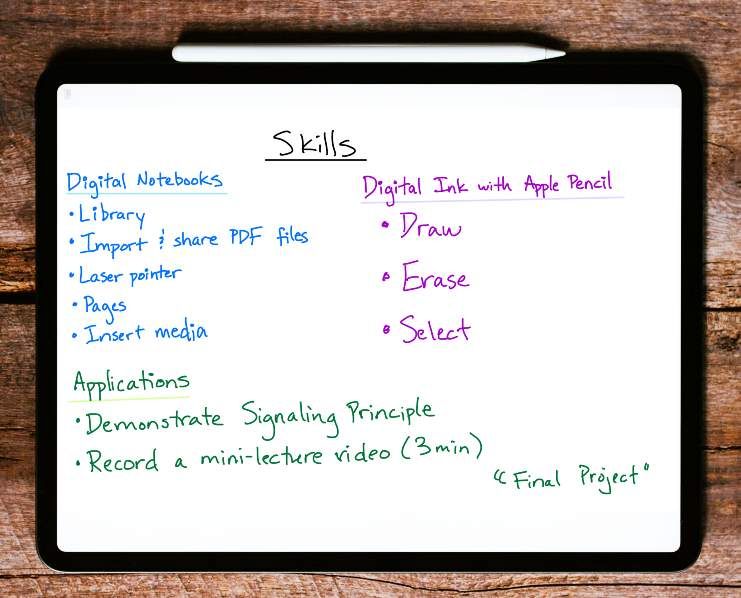 Skills
Digital Notebooks
• Library
• Import & share PDF files
• Laser pointer
• Pages
• Insert media
Digital Ink with Apple Pencil
• Draw
• Erase
• Select
Applications
• Demonstrate Signaling Principle
• Record a mini-lecture video (3 min)
"Final Project"